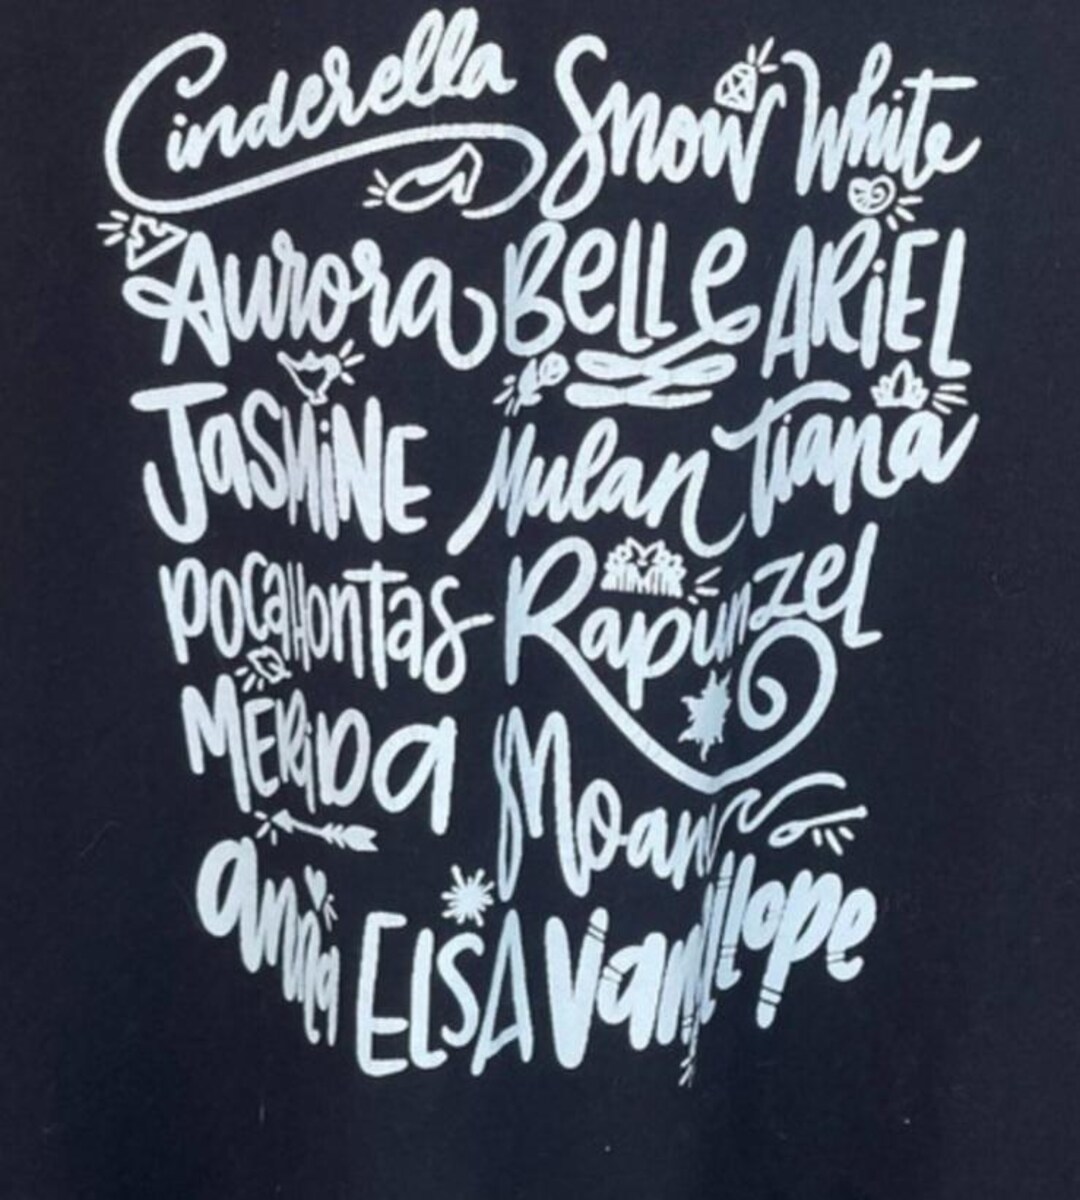 Cinderella Snow White
Aurora Belle ARiEL
JasMiNE Mulan Tiana
pocaHontas Rapunzel
MERiDa Moana
anna ELSA Vanellope